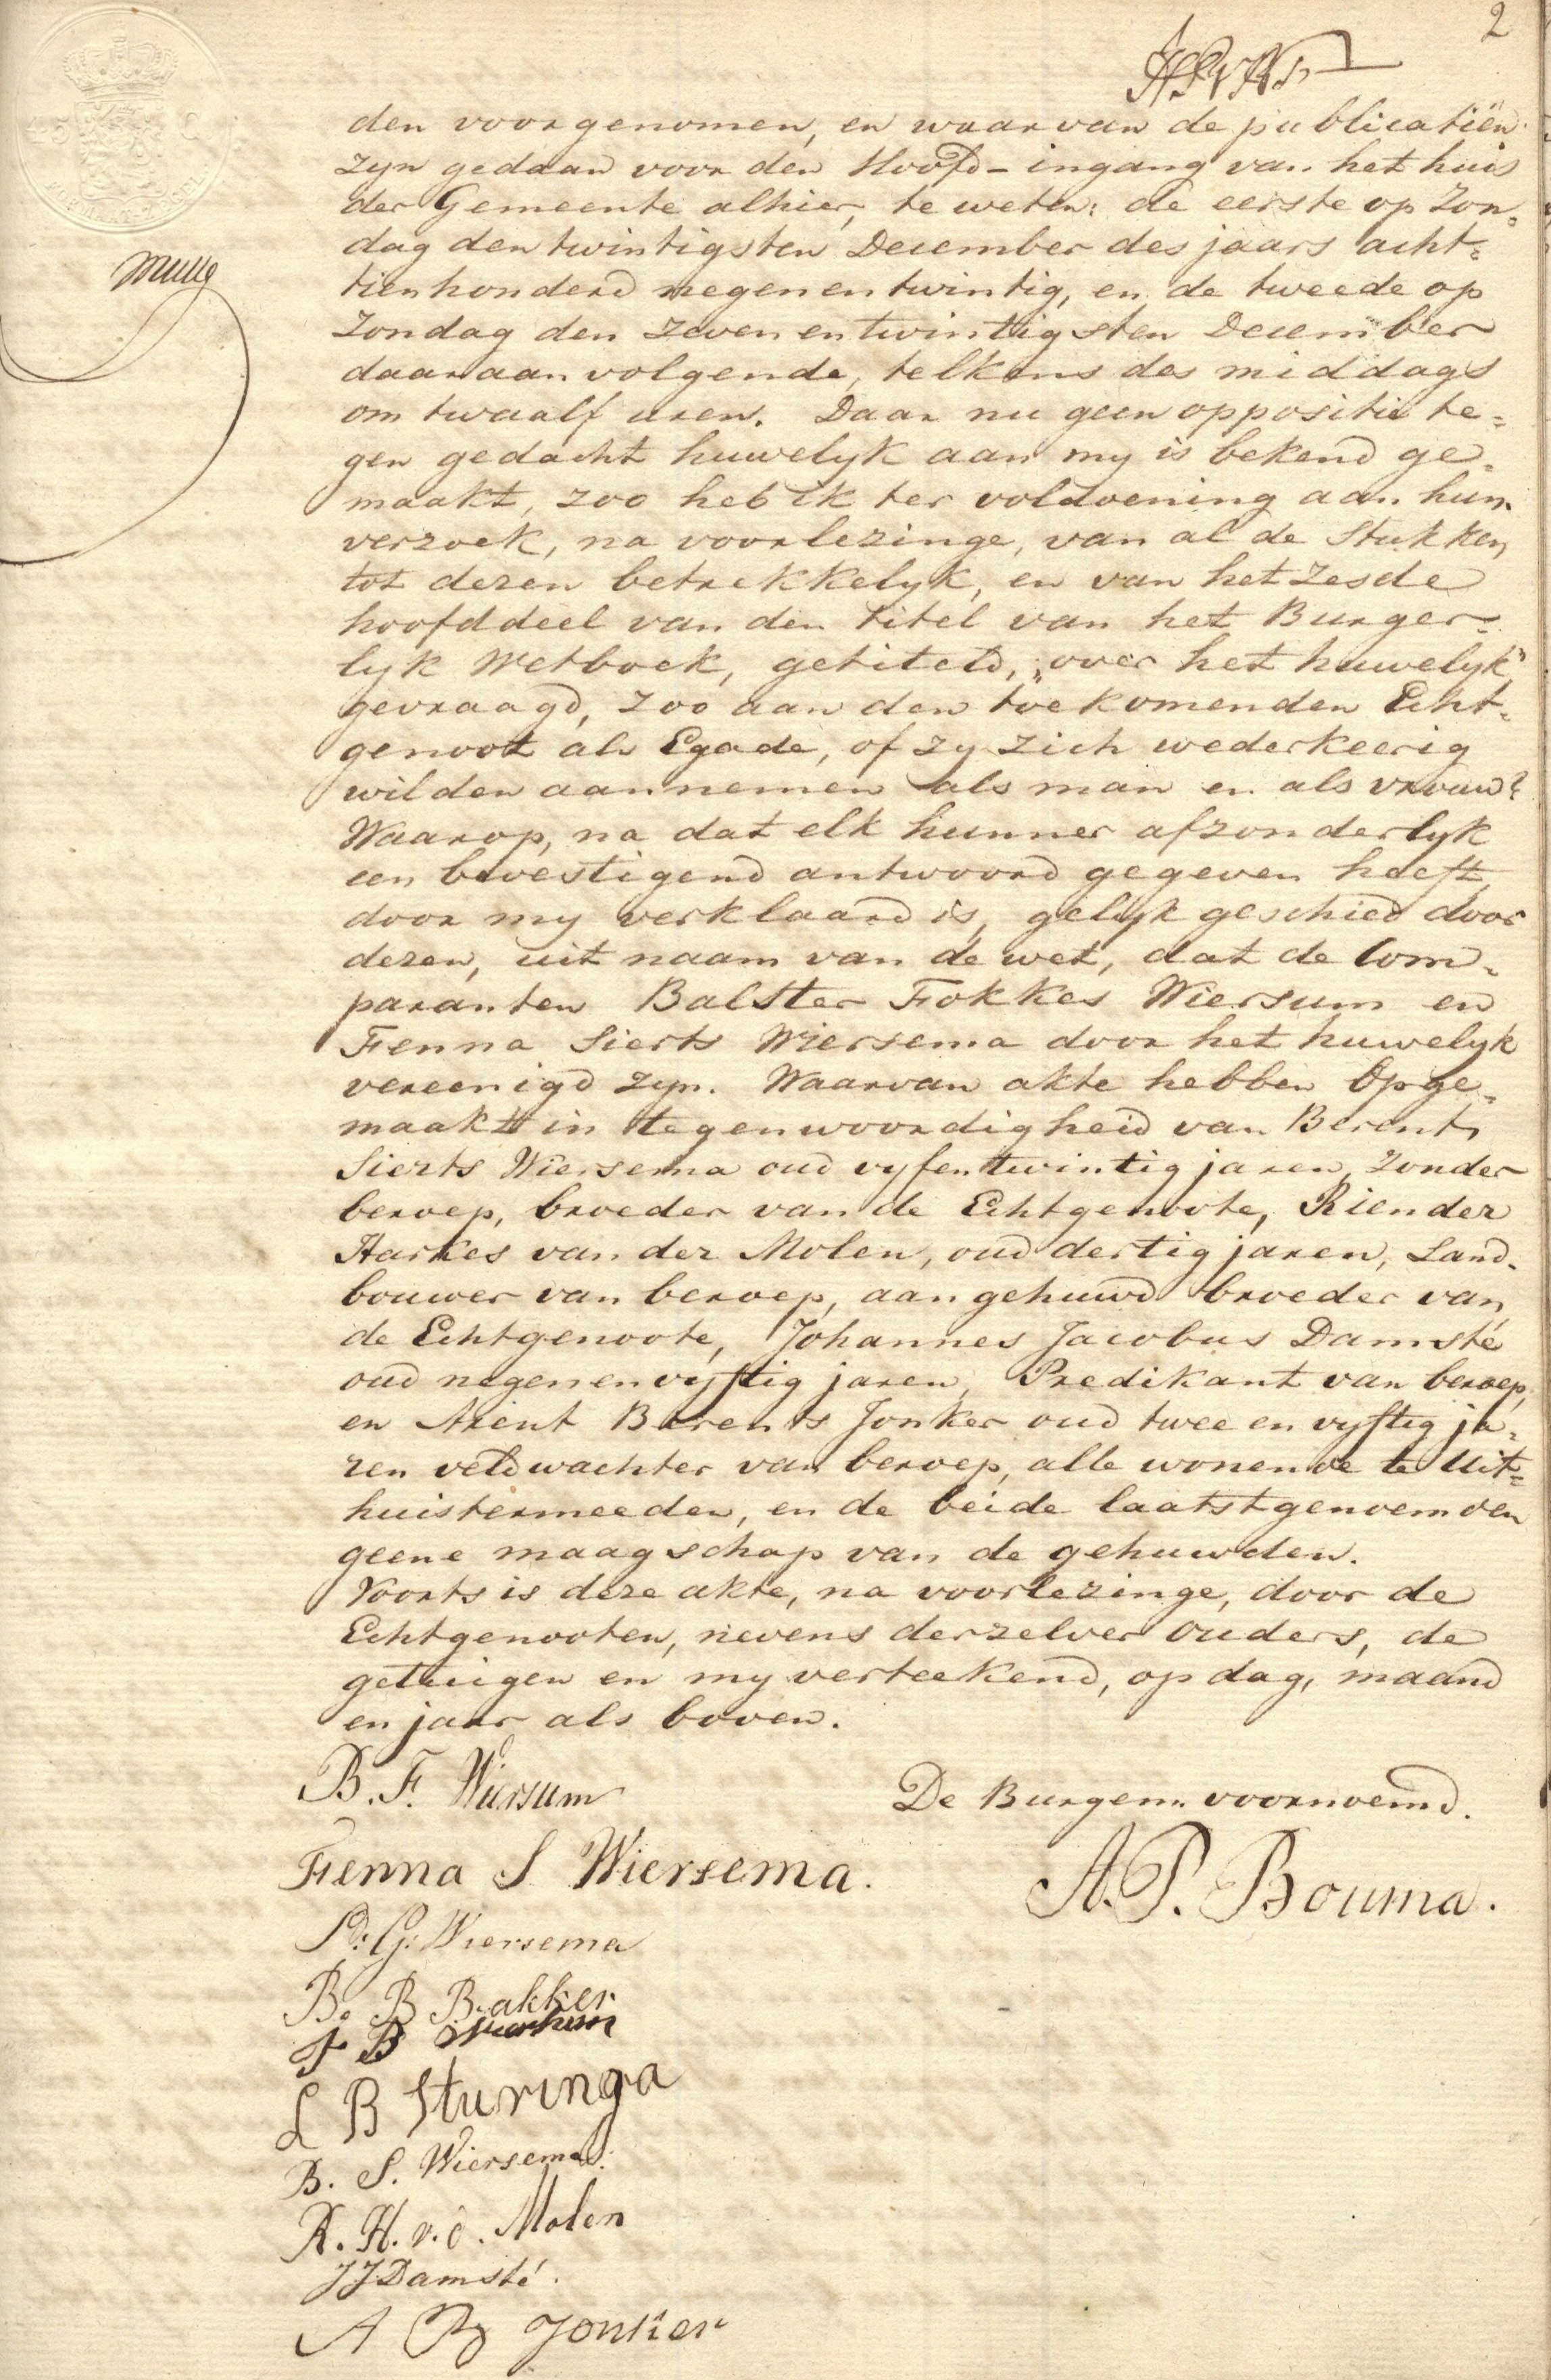 2
den voorgenomen, en waarvan de publicatiën
zyn gedaan voor den Hoofd-ingang van het huis
der Gemeente alhier, te weten: de eerste op Zon=
dag den twintigsten December des jaars acht=
tienhonderd negenentwintig, en de tweede op
Zondag den zevenentwintigsten December
daaraanvolgende, telkens des middags
om twaalf uren. Daar nu geen oppositie te=
gen gedacht huwelyk aan my is bekend ge=
maakt, zoo heb ik ter voldoening aan hun
verzoek, na voorlezinge, van al de Stukken,
tot dezen betrekkelyk, en van het zesde
hoofddeel van den titel van het Burger=
lyk Wetboek, getiteld, „over het huwelyk”
gevraagd, zoo aan den toekomenden Echt=
genoot als Egade, of zy zich wederkeerig
wilden aannemen als man en als vrouw?
Waarop, na dat elk hunner afzonderlyk
een bevestigend antwoord gegeven heeft,
door my verklaard is, gelyk geschied door
dezen, uit naam van de wet, dat de Com=
paranten Balster Fokkes Wiersum en
Fenna Sierts Wiersema door het huwelyk
vereenigd zyn. Waarvan akte hebben Opge=
maakt in tegenwoordigheid van Berent
Sierts Wiersema oud vyfentwintig jaren, zonder
beroep, broeder van de Echtgenoote, Riender
Harkes van der Molen, oud dertig jaren, Land=
bouwer van beroep, aangehuwd broeder van
de Echtgenoote, Johannes Jacobus Damsté
oud negenenvyftig jaren, Predikant van beroep,
en Arent Berents Jonker oud twee en vyftig ja=
ren veldwachter van beroep, alle wonende te Uit=
huistermeeden, en de beide laatstgenoemden
geene maagschap van de gehuwden.
Voorts is deze akte, na voorlezinge, door de
Echtgenooten, nevens derzelver Ouders, de
getuigen en my verteekend, op dag, maand
en jaar als boven.
B. F. Wiersum
De Burgem. voornoemd.
Fenna S Wiersema.
A. P. Bouma.
S: G: Wiersema
B. B Bakker
F B Wiersum
L B Sturinga
B. S. Wiersema.
R. H. v. d. Molen
JJ Damsté.
A B Jonker